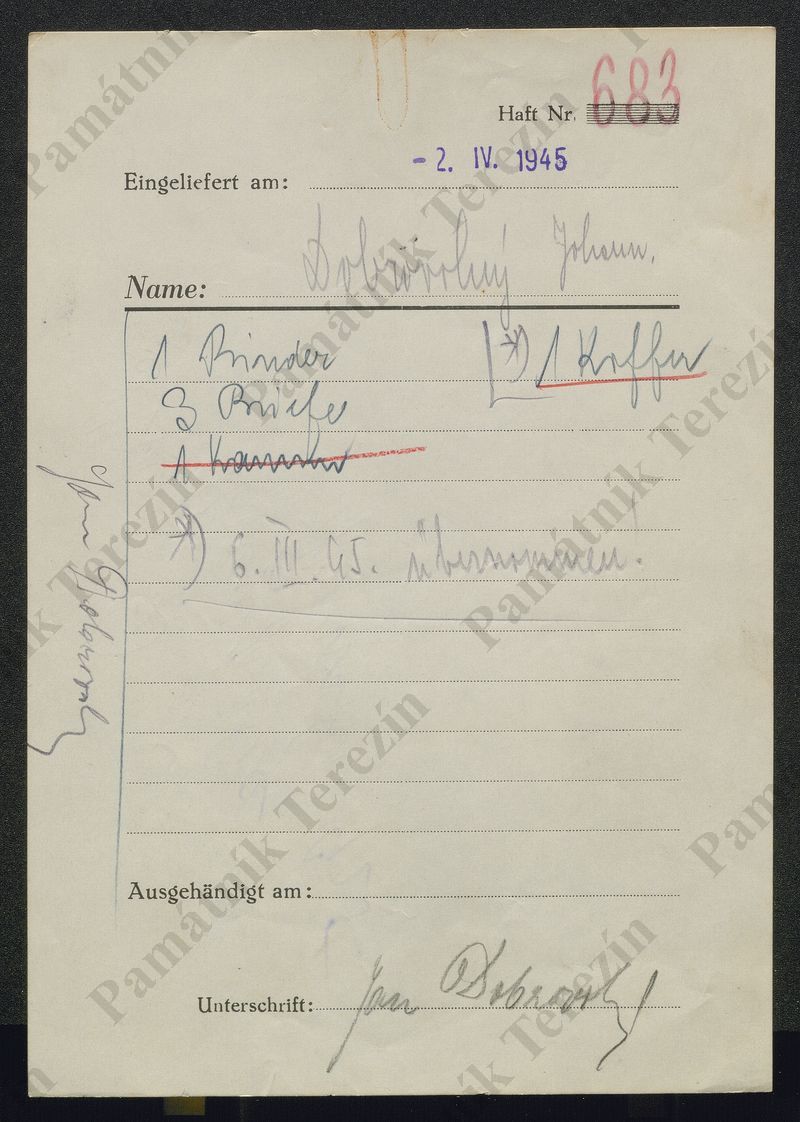 Haft Nr. 683
- 2. IV. 1945
Eingeliefert am:
Name: Dobrovolný Johann.
1 Binder *) 1 Koffer
3 Briefe
1 Kammer
*) 6. III. 45. übernommen!
Jan Dobrovolný
Ausgehändigt am:
Unterschrift: Jan Dobrovolný
Památník Terezín
Památník Terezín
Památník Terezín
Památník Terezín
Památník Terezín
Památník Terezín